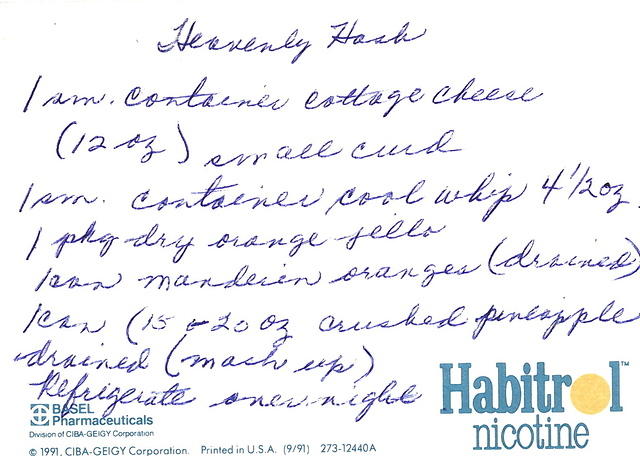 Heavenly Hash
1 sm. container cottage cheese
(12 oz) small curd
1 sm. container cool whip 4 1/2 oz.
1 pkg dry orange jello
1 can mandeien oranges (drained)
1 can (15 - 20 oz crushed pineapple
drained (mash up)
Refrigerate over night
BASEL
Pharmaceuticals
Division of CIBA-GEIGY Corporation
© 1991, CIBA-GEIGY Corporation. Printed in U.S.A. (9/91) 273-12440A
Habitrol™
nicotine